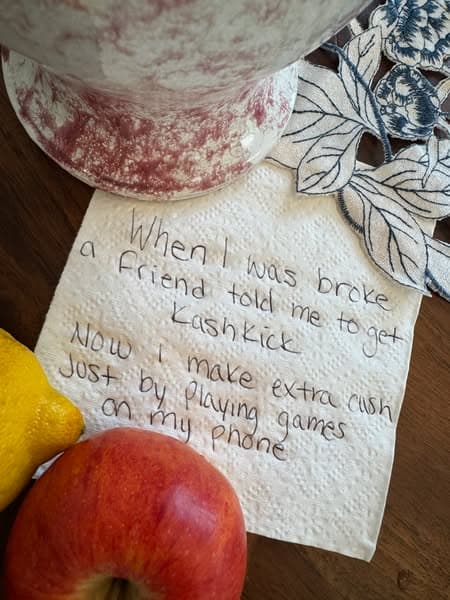 When I was broke
a friend told me to get
KashKick
Now i make extra cash
Just by playing games
on my phone